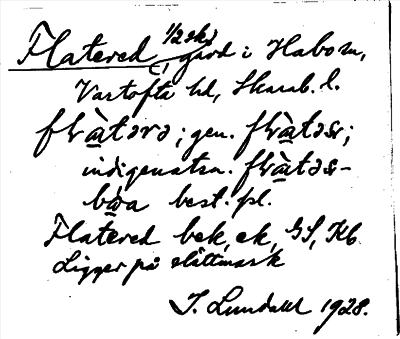 Flatered, 1/2 skj gård i Habo sn,
Vartofta hd, Skarab. l.
flàtərə; gen. flàtəs;
indigenatsn. flàtəs-
bòa best. pl.
Flatered bek, ek, GS, Kb
Ligger på slättmark
I. Lundahl 1928.